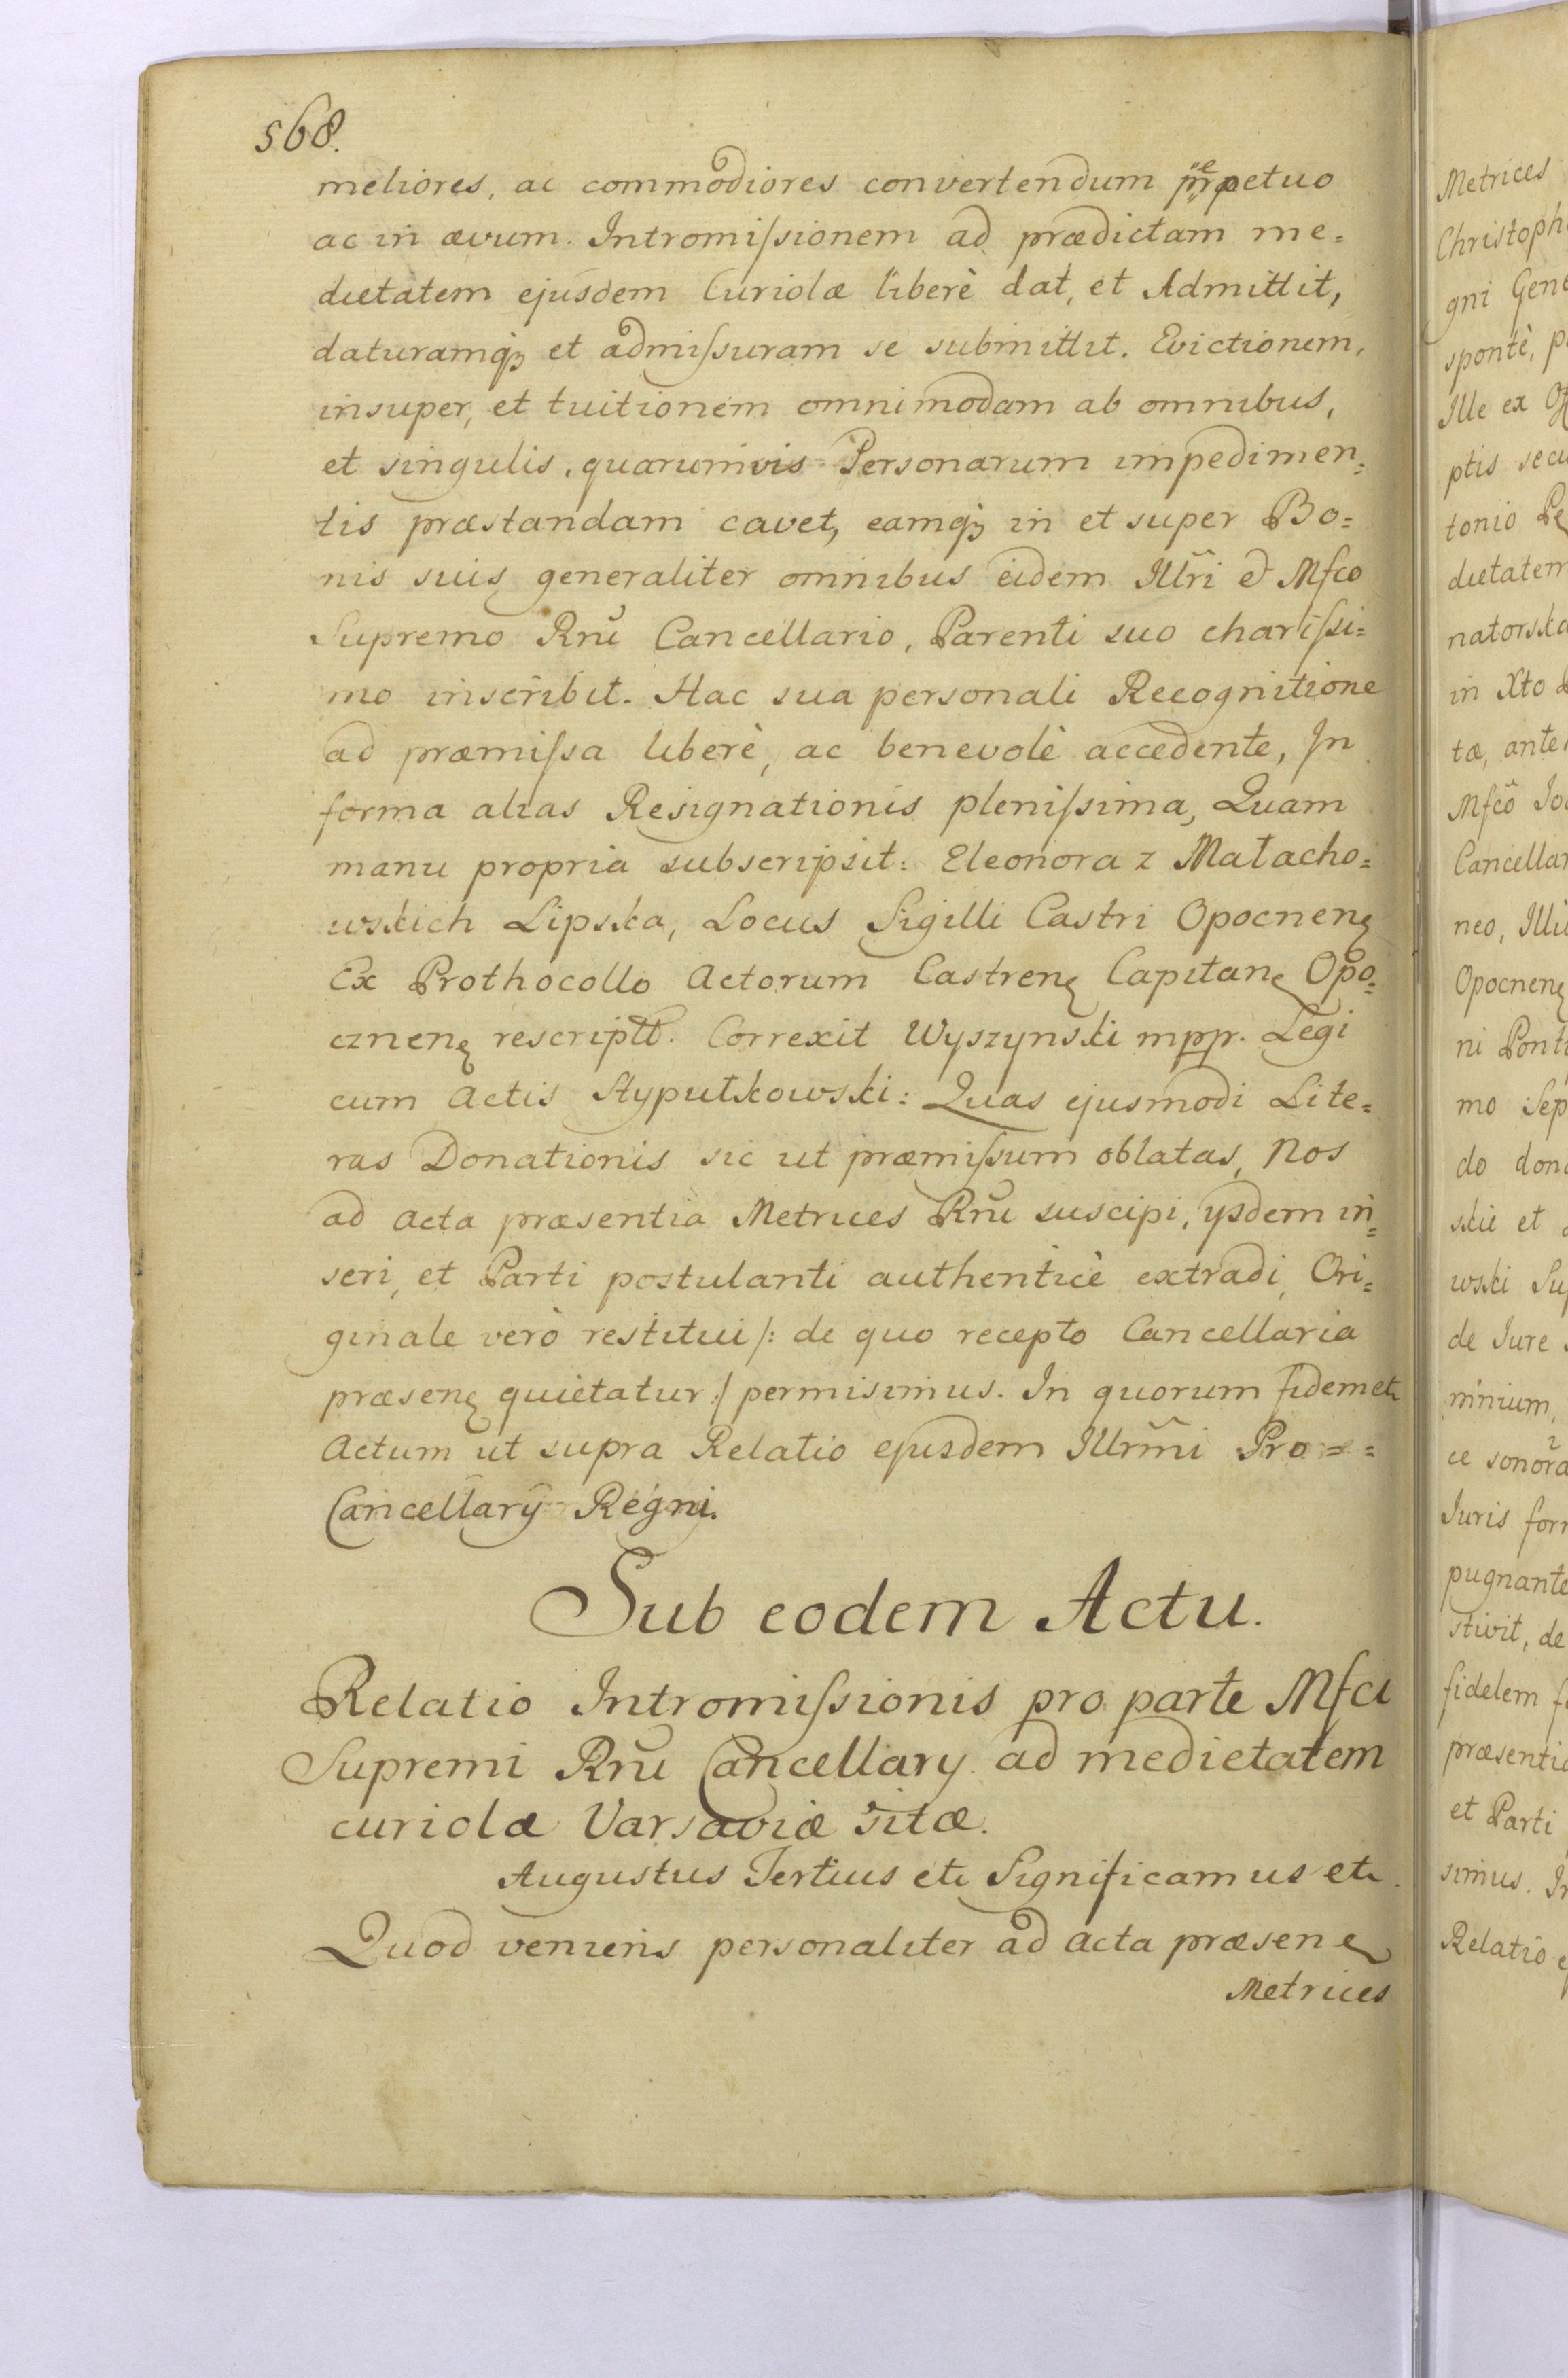 568.
meliores, ac commodiores convertendum perpetuo
ac in ævum. Intromiſsionem ad prædictam me=
dietatem ejusdem Curiolæ liberè dat, et Admittit,
daturamqꝫ et admiſsuram se submittit. Evictionem,
insuper, et tuitionem omnimodam ab omnibus,
et singulis, quarumvis Personarum impedimen=
tis præstandam cavet, eamqꝫ in et super Bo=
nis suis generaliter omnibus eidem Illri̅ & Mfco
Supremo Rnĩ Cancellario, Parenti suo chariſsi=
mo inscribit. Hac sua personali Recognitione
ad præmiſsa liberè, ac benevolè accedente, In
forma alias Resignationis pleniſsima, Quam
manu propria subscripsit: Eleonora z Małacho=
wskich Lipska, Locus Sigilli Castri Opocnenꝭ
Ex Prothocollo Actorum Castrenꝭ Capitanꝭ Opo=
cznenꝭ rescriptt. Correxit Wyszynski mpp. Legi
cum Actis Stypułkowski: Quas ejusmodi Lite=
ras Donationis sic ut præmiſsum oblatas, Nos
ad Acta præsentia Metrices Rnĩ suscipi, ysdem in=
seri, et Parti postulanti authenticè extradi, Ori=
ginale verò restitui /: de quo recepto Cancellaria
præsenꝭ quietatur :/ permisimus. In quorum fidem etc
Actum ut supra Relatio ejusdem Illrm̃i Pro=
Cancellarÿ Regni.
Sub eodem Actu.
Relatio Intromiſsionis pro parte Mfci
Supremi Rnĩ Cancellary ad medietatem
curiolæ Varsaviæ sitæ.
Augustus Tertius etc Significamus etc.
Quod veniens personaliter ad Acta præsenꝭ
Metrices
Metrices
Christoph
gni Gene
spontè, p
Ille ex Of
ptis secu
tonio Pe
dietatem
natorska
in Xto
tæ, ante
Mfcõ Jo
Cancellar
neo, Illi
Opocnenꝭ
ni Ponti
mo Sep
do dona
skie et
wski Su
de Jure
minium,
ce sonora
Juris for
pugnante
stivit, de
fidelem f
præsentia
et Parti
simus. In
Relatio e